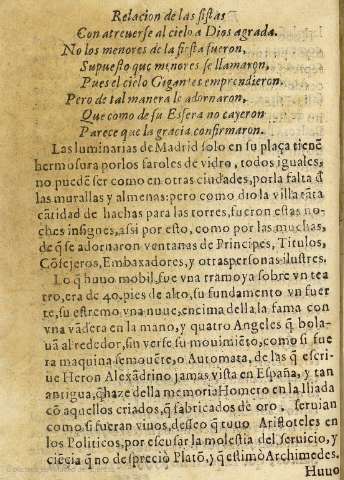 Relacion de las fiestas
Con atreuerse al cielo a Dios agrada.
No los menores de la fiesta fueron,
Supuesto que menores se llamaron,
Pues el cielo Gigantes emprendieron.
Pero de tal manera le adornaron,
Que como de su Esfera no cayeron
Parece que la gracia confirmaron.
Las luminarias de Madrid solo en su plaça tienẽ
hermosura por los faroles de vidro, todos iguales,
no puedẽ ser como en otras ciudades, por la falta đ
las murallas y almenas: pero como dio la villa tãta
cãtidad de hachas para las torres, fueron estas no-
ches insignes, assi por esto, como por las muchas,
de q̃ se adornaron ventanas de Principes, Titulos,
Cõsejeros, Embaxadores, y otras personas ilustres.
Lo q̃ huuo mobil, fue vna tramoya sobre vn tea
tro, era de 40. pies de alto, su fundamento vn fuer
te, su estremo vna nuue, encima della la fama con
vna vãdera en la mano, y quatro Angeles q̃ bola-
uã al rededor, sin verse su mouimiẽto, como si fue
ra maquina semouẽte, o Automata, de las q̃ escri-
ue Heron Alexãdrino jamas vista en España, y tan
antigua, q̃ haze della memoria Homero en la Iliada
cõ aquellos criados, q̃ fabricados de oro, seruian
como si fueran viuos, desseo q̃ tuuo Aristoteles en
los Politicos, por escusar la molestia del seruicio, y
ciẽcia q̃ no despreciò Platõ, y q̃ estimò Archimedes.
Huuo